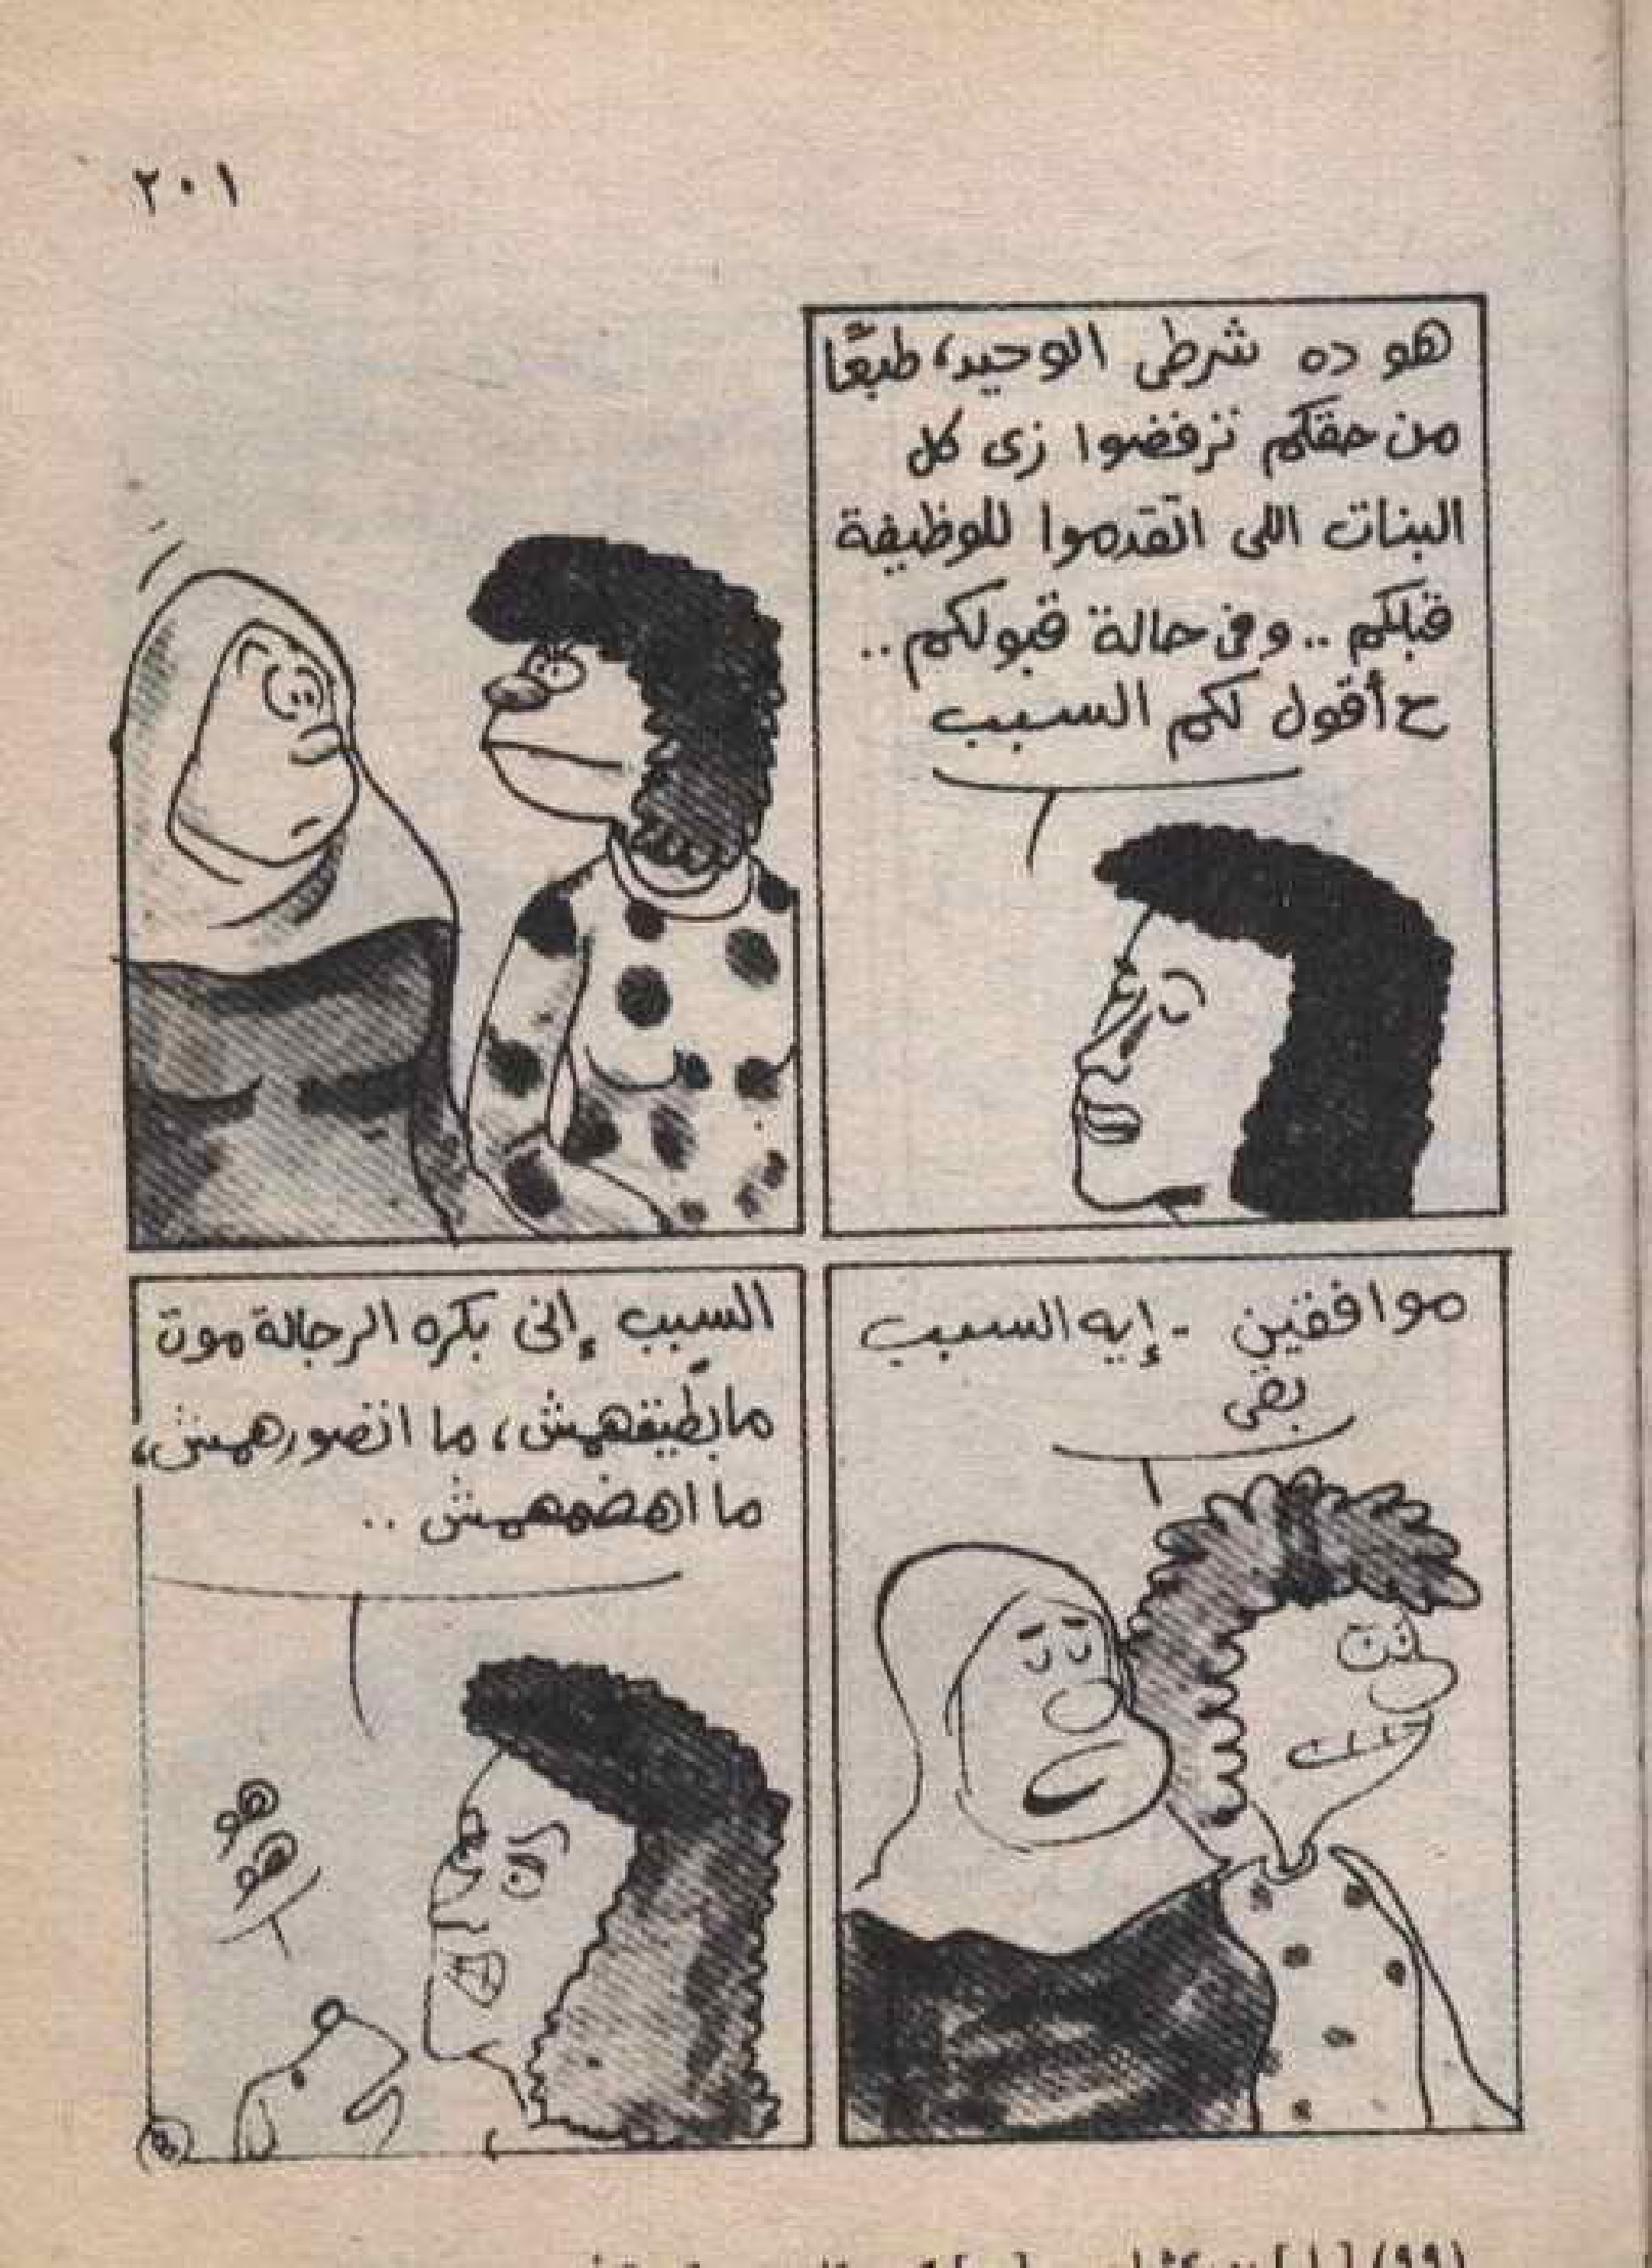 ٢٠١
هو ده شرطى الوحيد، طبعًا
من حقكم ترفضوا زى كل
البنات اللى اتقدموا للوظيفة
قبلكم .. وفى حالة قبولكم ..
ح أقول لكم السبب
موافقين - إيه السبب
بقى
السبب إنى بكره الرجالة موت
مابطيقهمش، ما اتصورهمش،
ما اهضمهمش ..
هو
هو